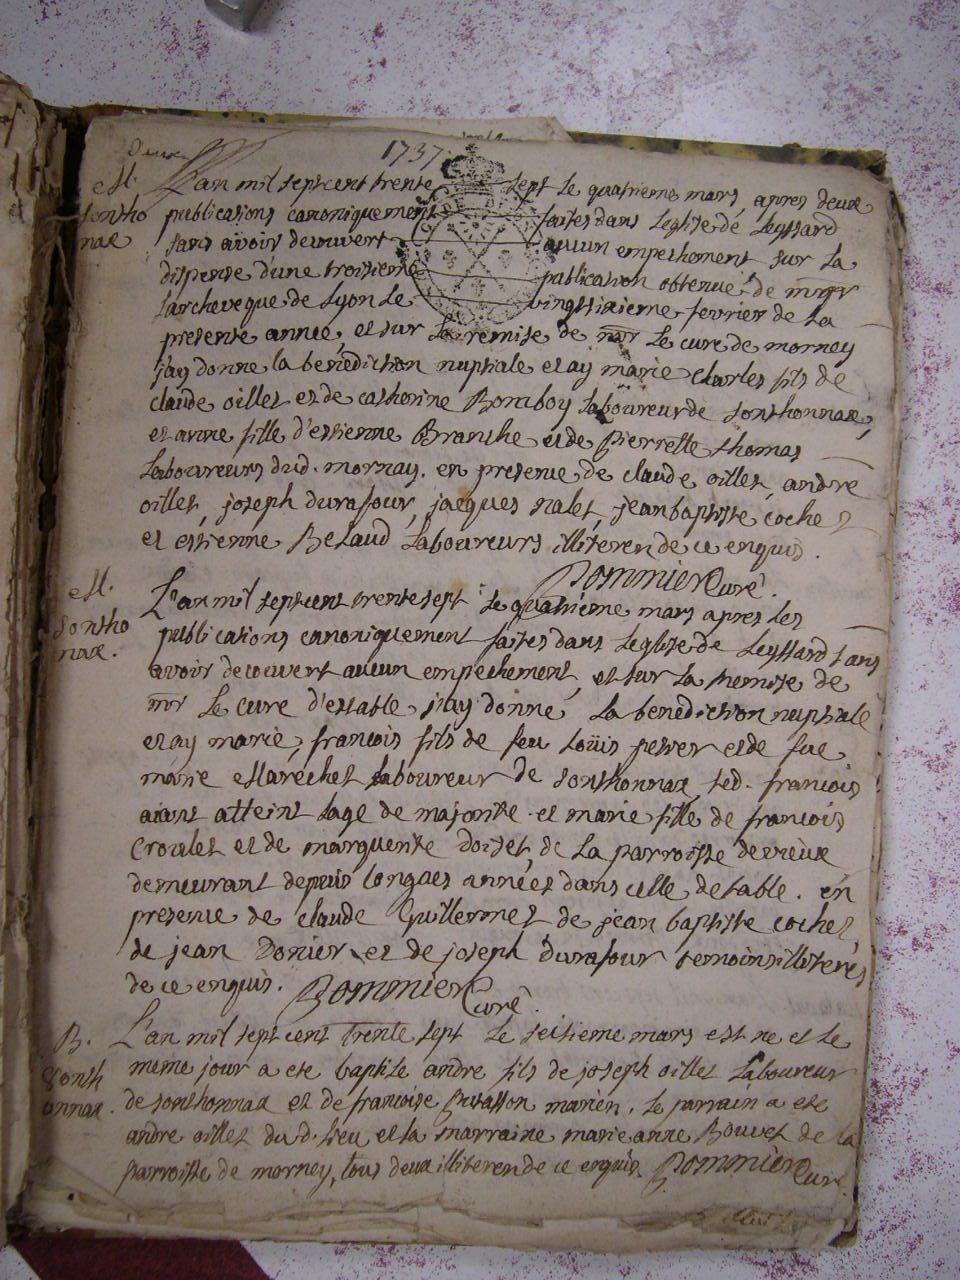 1737
M.
Sontho
nax
L'an mil septcent trente sept le quatrieme mars, apres deux
publications canoniquement faites dans l'eglise de Leyssard
sans avoir decouvert aucun empeschement sur la
dispense d'une troisieme publication obtenue de mgr
l'archeveque de Lyon le vingtsixieme fevrier de la
presente année, et sur la remise de mr le cure de mornay
j'ay donne la benediction nuptiale et ay marie Charles fils de
claude oillet et de catherine Bomboy laboureur de sonthonnax,
et anne fille d'estienne Branche et de pierrette thomas
laboureurs dud. mornay. en presence de claude oillet, andre
oillet, joseph durafour, jacques nalet, jean baptiste cochet
et estienne Belaud laboureurs illiteren de ce enquis.
Pommier Curé.
M.
Sontho
nax.
L'an mil septcent trente sept le quatrieme mars apres les
publications canoniquement faites dans l'eglise de Leyssard sans
avoir decouvert aucun empechement, et sur la remise de
mr le cure d'estable j'ay donné la benediction nuptiale
et ay marie, francois fils de feu Loüis perrer et de fue
marie Marechet laboureur de sonthonnax led. francois
aiant atteint l'age de majorite. et marie fille de francois
Croulet et de marguerite doitet, de la parroisse de vieux
demeurant depuis longues années dans celle detable. en
presence de claude Guillermet de jean baptiste cochet,
de jean Donier et de joseph durafour temoins illiteres
de ce enquis. Pommier Curé.
B.
Sonth
onnax.
L'an mil sept cent trente sept le seisieme mars est ne et le
meme jour a ete baptise andre fils de joseph oillet laboureur
de sonthonnax et de francoise marien. le parrain a ete
andre oillet du d. lieu et la marraine marie anne Bouvet de la
parroisse de mornay, tous deux illiteren de ce enquis Pommier Curé